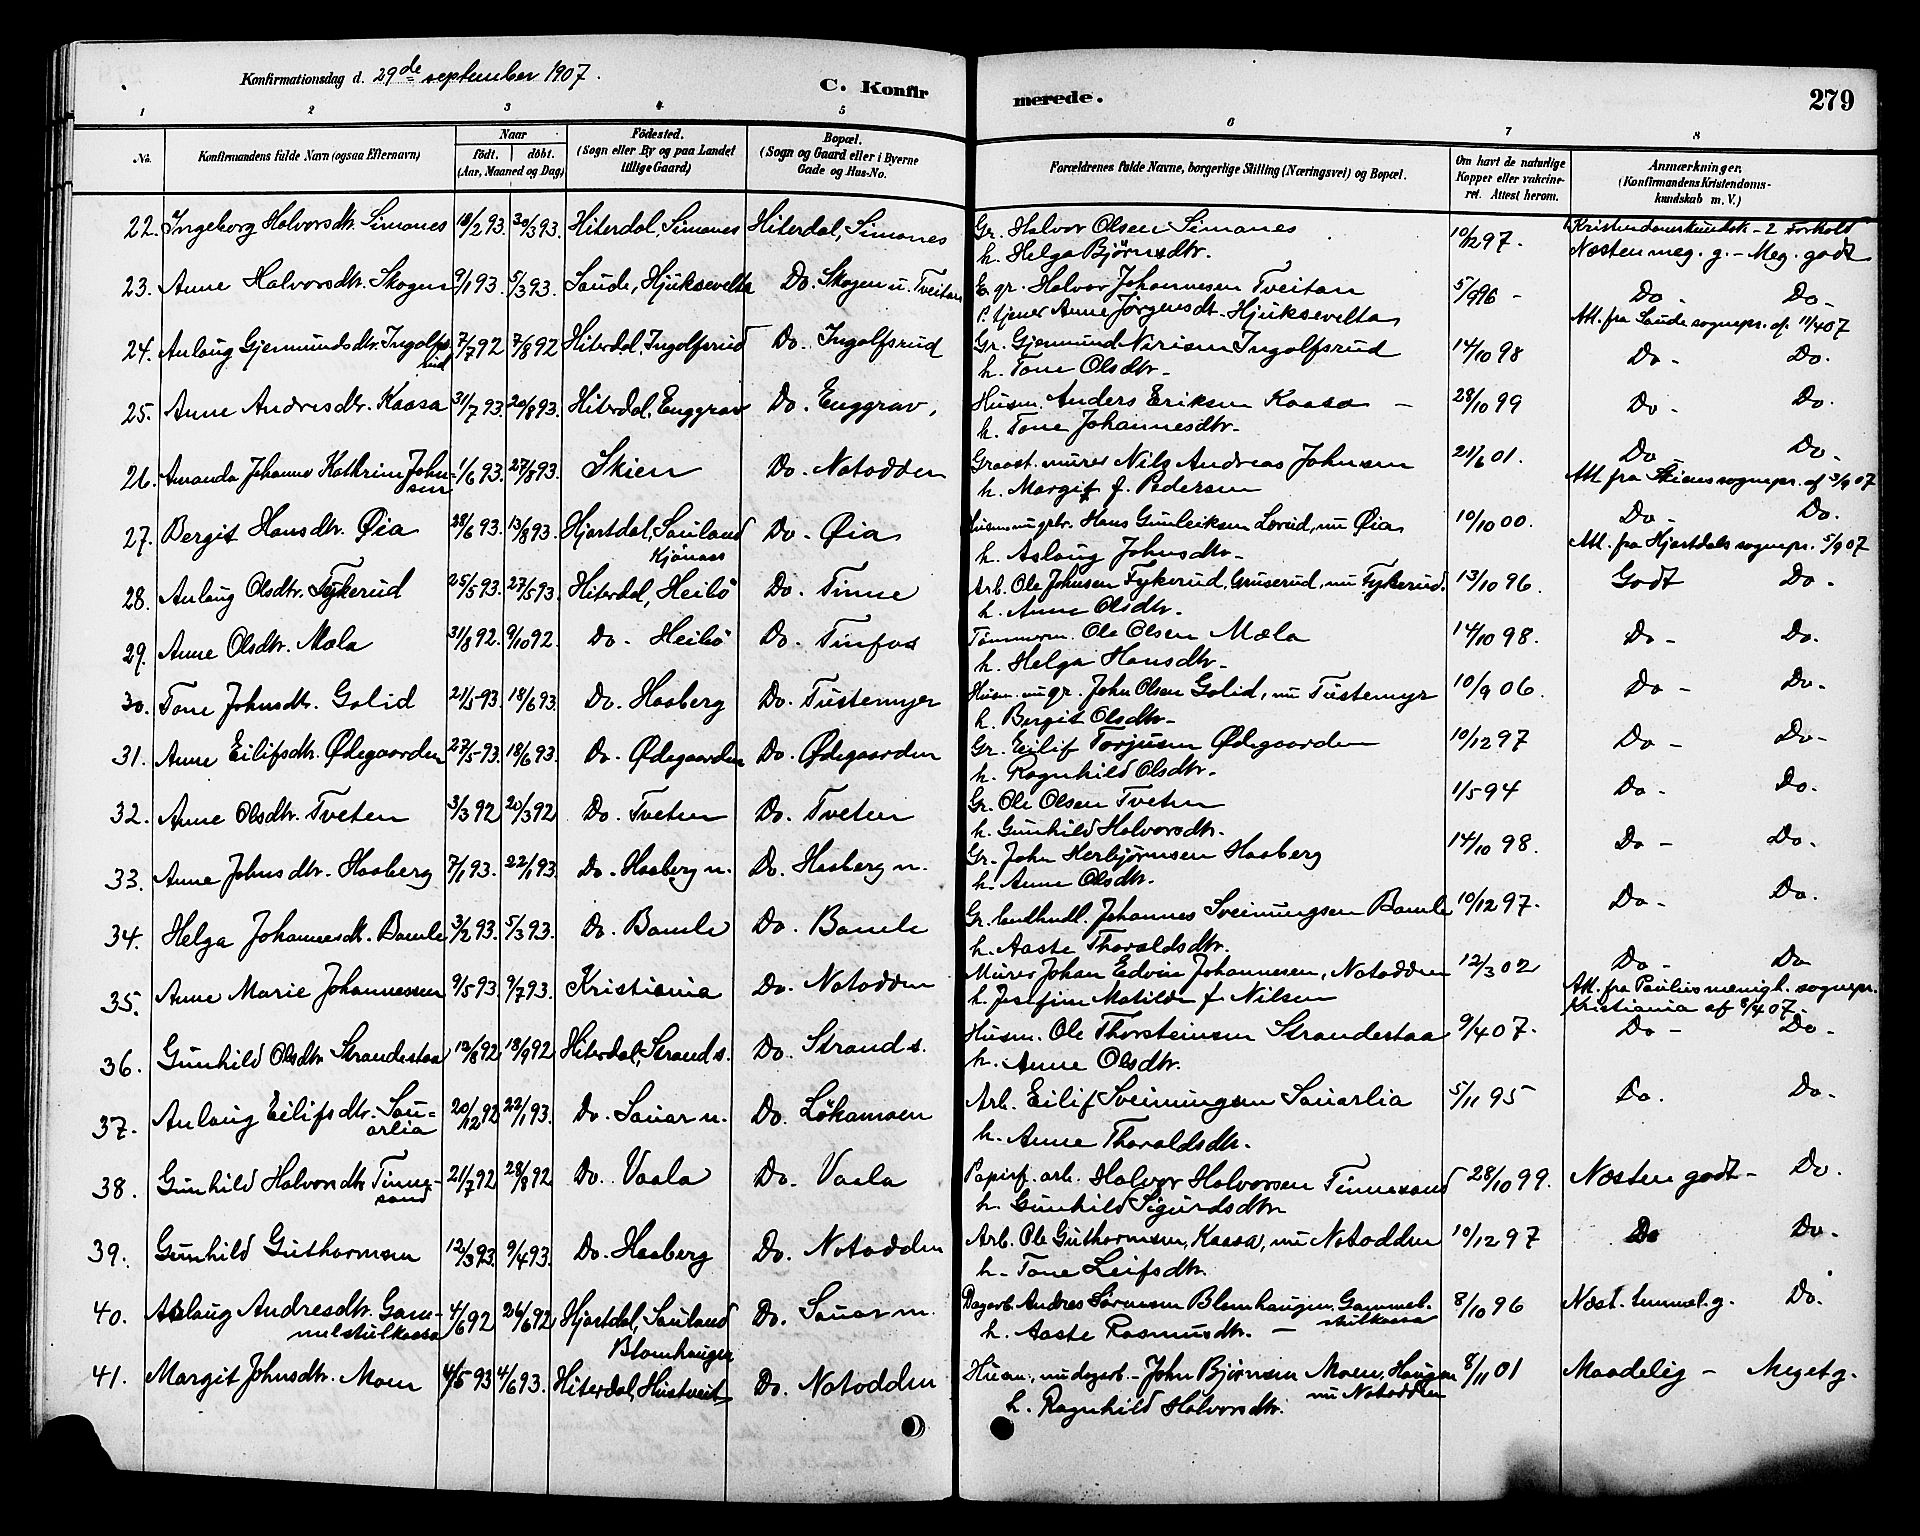 Konfirmationsdag d. 29de september 1907.
C. Konfirmerede.
279
1 2 3 4 5 6 7 8
No. Konfirmandens fulde Navn (ogsaa Efternavn) Naar födt. döbt. (Aar, Maaned og Dag) Födested. (Sogn eller By og paa Landet tillige Gaard) Bopæl. (Sogn og Gaard eller i Byerne Gade og Hus-No. Forældrenes fulde Navne, borgerlige Stilling (Næringsvei) og Bopæl. Om havt de naturlige Kopper eller vakcineret. Attest herom. Anmærkninger. (Konfirmandens Kristendomskundskab m. V.)
22. Ingeborg Halvorsdtr. Simones 18/2 93. 30/3 93. Hiterdal, Simones Hiterdal, Simones Gr. Halvor Olsen Simones 10/12 97. Kristendomskundsk. - 2 Forhold
h. Helga Bjørnsdtr. Næsten meg. g. - Meg. godt
23. Anne Halvorsdtr. Skogen 9/1 93. 5/3 93. Saude, Hjuksevelta Do. Skogen u. Tveitan E. gr. Halvor Johannesen Tveitan 5/9 96 - Do - Do -
P. tjener Anne Jørgensdt. Hjuksevelta Att. fra Saude sognepr. af 11/4 07
24. Aslaug Gjermundsdtr. Ingolfsrud 7/7 92 7/8 92 Hiterdal, Ingolfsrud Do. Ingolfsrud Gr. Gjermund Nirisen Ingolfsrud 14/10 98 Do - Do.
h. Tone Olsdtr.
25. Anne Andresdtr. Kaasa 31/7 93. 20/8 93. Hiterdal, Enggrav Do. Enggrav, Husm. Anders Eriksen Kaasa - 28/10 99 Do - Do.
h. Tone Johannesdtr.
26. Amanda Johanne Kathrine Johnsen 1/6 93. 27/8 93. Skien Do. Notodden Graast. murer Nils Andreas Johnsen 21/6 01. Do Do.
h. Margit f. Pedersen Att. fra Skiens sognepr. af 3/9 07
27. Bergit Hansdtr. Øia 28/6 93. 13/8 93. Hjartdal, Sauland Kjønaas Do. Øia Husm. nu gbr. Hans Gunleiksen Løveid, nu Øia 10/10 00. Do - Do.
h. Aslaug Johnsdtr. Att. fra Hjartdals sognepr. 5/9 07
28. Aslaug Olsdtr. Tykerud 25/5 93. 27/5 93. Hiterdal, Heibö Do. Tinne Arb. Ole Johnsen Tykerud, Gruserud, nu Tykerud. 13/10 96. Godt Do.
h. Anne Olsdtr.
29. Anne Olsdtr. Mæla 31/8 92. 9/10 92. Do. Heibö Do. Tinfos Tømmerm. Ole Olsen Mæla 14/10 98. Do - Do.
h. Helga Hansdtr.
30. Tone Johnsdtr. Golid 21/5 93 18/6 93. Do. Haaberg Do. Tustemyer Husm. nu gr. John Olsen Golid, nu Tustemyr 10/9 06. Do - Do.
h. Bergit Olsdtr.
31. Anne Eilifsdtr. Ødegaarden 27/5 93. 18/6 93. Do. Ødegaarden Do. Ødegaarden Gr. Eilif Torjusen Ødegaarden 10/12 97 Do - Do -
h. Ragnhild Olsdtr.
32. Anne Olsdtr. Tveten 3/3 92 20/3 92 Do. Tveten Do. Tveten Gr. Ole Olsen Tveten 1/5 94 Do - Do.
h. Gunhild Halvorsdtr.
33. Anne Johnsdtr. Haaberg 7/1 93. 22/1 93. Do. Haaberg n. Do. Haaberg n. Gr. John Herbjørnsen Haaberg 14/10 98. Do - Do.
h. Anne Olsdtr.
34. Helga Johannesdt. Bamle 3/2 93. 5/3 93. Do. Bamle Do. Bamle Gr. landhndl. Johannes Sveinungsen Bamle 10/12 97. Do - Do.
h. Aaste Thoraldsdtr.
35. Anne Marie Johannessen 9/5 93. 9/7 93. Kristiania Do. Notodden Murer Johan Edvin Johannesen, Notodden 12/3 02 Do - Do
h. Josefine Matilde f. Nilsen Att. fra Paulus menigh. sognepr. Kristiania af 8/4 07.
36. Gunhild Olsdtr Strandestaa 13/8 92 18/9 92 Hiterdal, Strand s. Do. Strand s. Husm. Ole Thorsteinsen Strandestaa 9/4 07. Do - Do -
h. Anne Olsdtr.
37. Aslaug Eilifsdtr. Sauarlia 20/12 92 22/1 93. Do. Sauar n. Do. Løkamoen Arb. Eilif Sveinungsen Sauarlia 5/11 95 Do. Do -
h. Anne Thoraldsdtr.
38. Gunhild Halvorsdtr Tinnesand 21/7 92 28/8 92 Do. Vaala Do. Vaala Papirf. arb. Halvor Halvorsen Tinnesand 28/10 99. Næsten godt - Do.
h. Gunhild Sigurdsdtr
39. Gunhild Guthormsen 12/3 93. 9/4 93. Do. Haaberg Do. Notodden Arb. Ole Guthormsen, Kaasa, nu Notodden 10/12 97 Do Do -
h. Tone Leifsdtr.
40. Aslaug Andresdtr. Gammelstulkaasa 4/6 92 26/6 92 Hjartdal, Sauland Blomhaugen Do. Sauar m. Dagarb. Andres Sørensen Blomhaugen, Gammelstulkaasa 8/10 96 Næst. temmel. g. Do.
h. Aaste Rasmusdtr. -
41. Margit Johnsdtr. Moen 4/5 93 4/6 93. Hiterdal, Hustveit Do. Notodden Husm., nu dagarb. John Bjørnsen Moen, Haugen nu Notodden 8/11 01 Maadelig - Meget g.
h. Ragnhild Halvorsdtr.